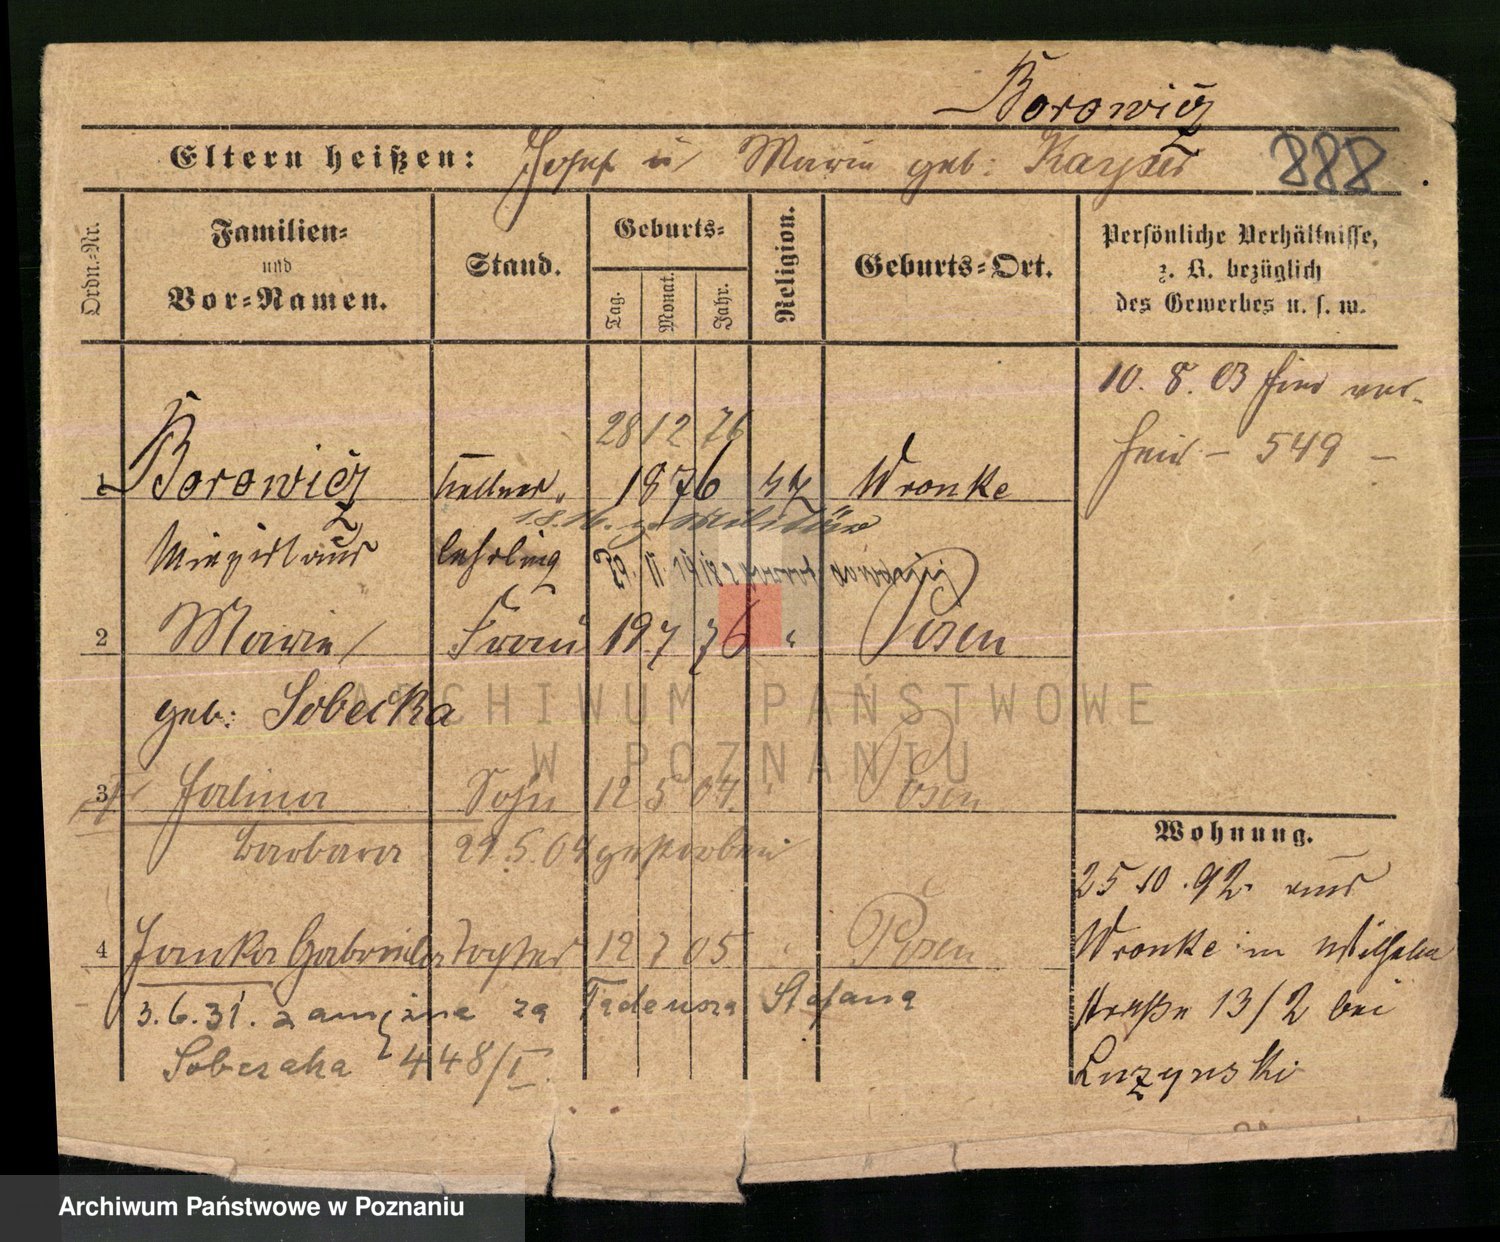 Borowicz
Eltern heißen: Josef u. Marie geb: Kayser 888
Ordn.-Nr. Familien- und Vor-Namen. Stand. Geburts- Tag. Monat. Jahr. Religion. Geburts-Ort. Persönliche Verhältnisse, z. B. bezüglich des Gewerbes u. s. w.
10. 8. 03 hier ver-
heir – 549 –
28 12 76
1 Borowicz Kellner 1876 kt Wronke
z. Militär
lehrling
2 Marie Frau 19 7 76 " Posen
geb: Sobecka
3 Halina 12 5 04. " Posen
Barbara 29.5.04 gestorben
4 Janka Gabriela Tochter 12 7 05 " Posen
3.6.31. zamężna za Tadeusza Stefana
Sobczaka 448/I.
Wohnung.
25 10. 92. aus
Wronke in Wilhelm
straße 13/2 bei
Luzynski
ARCHIWUM PAŃSTWOWE
W POZNANIU
Archiwum Państwowe w Poznaniu